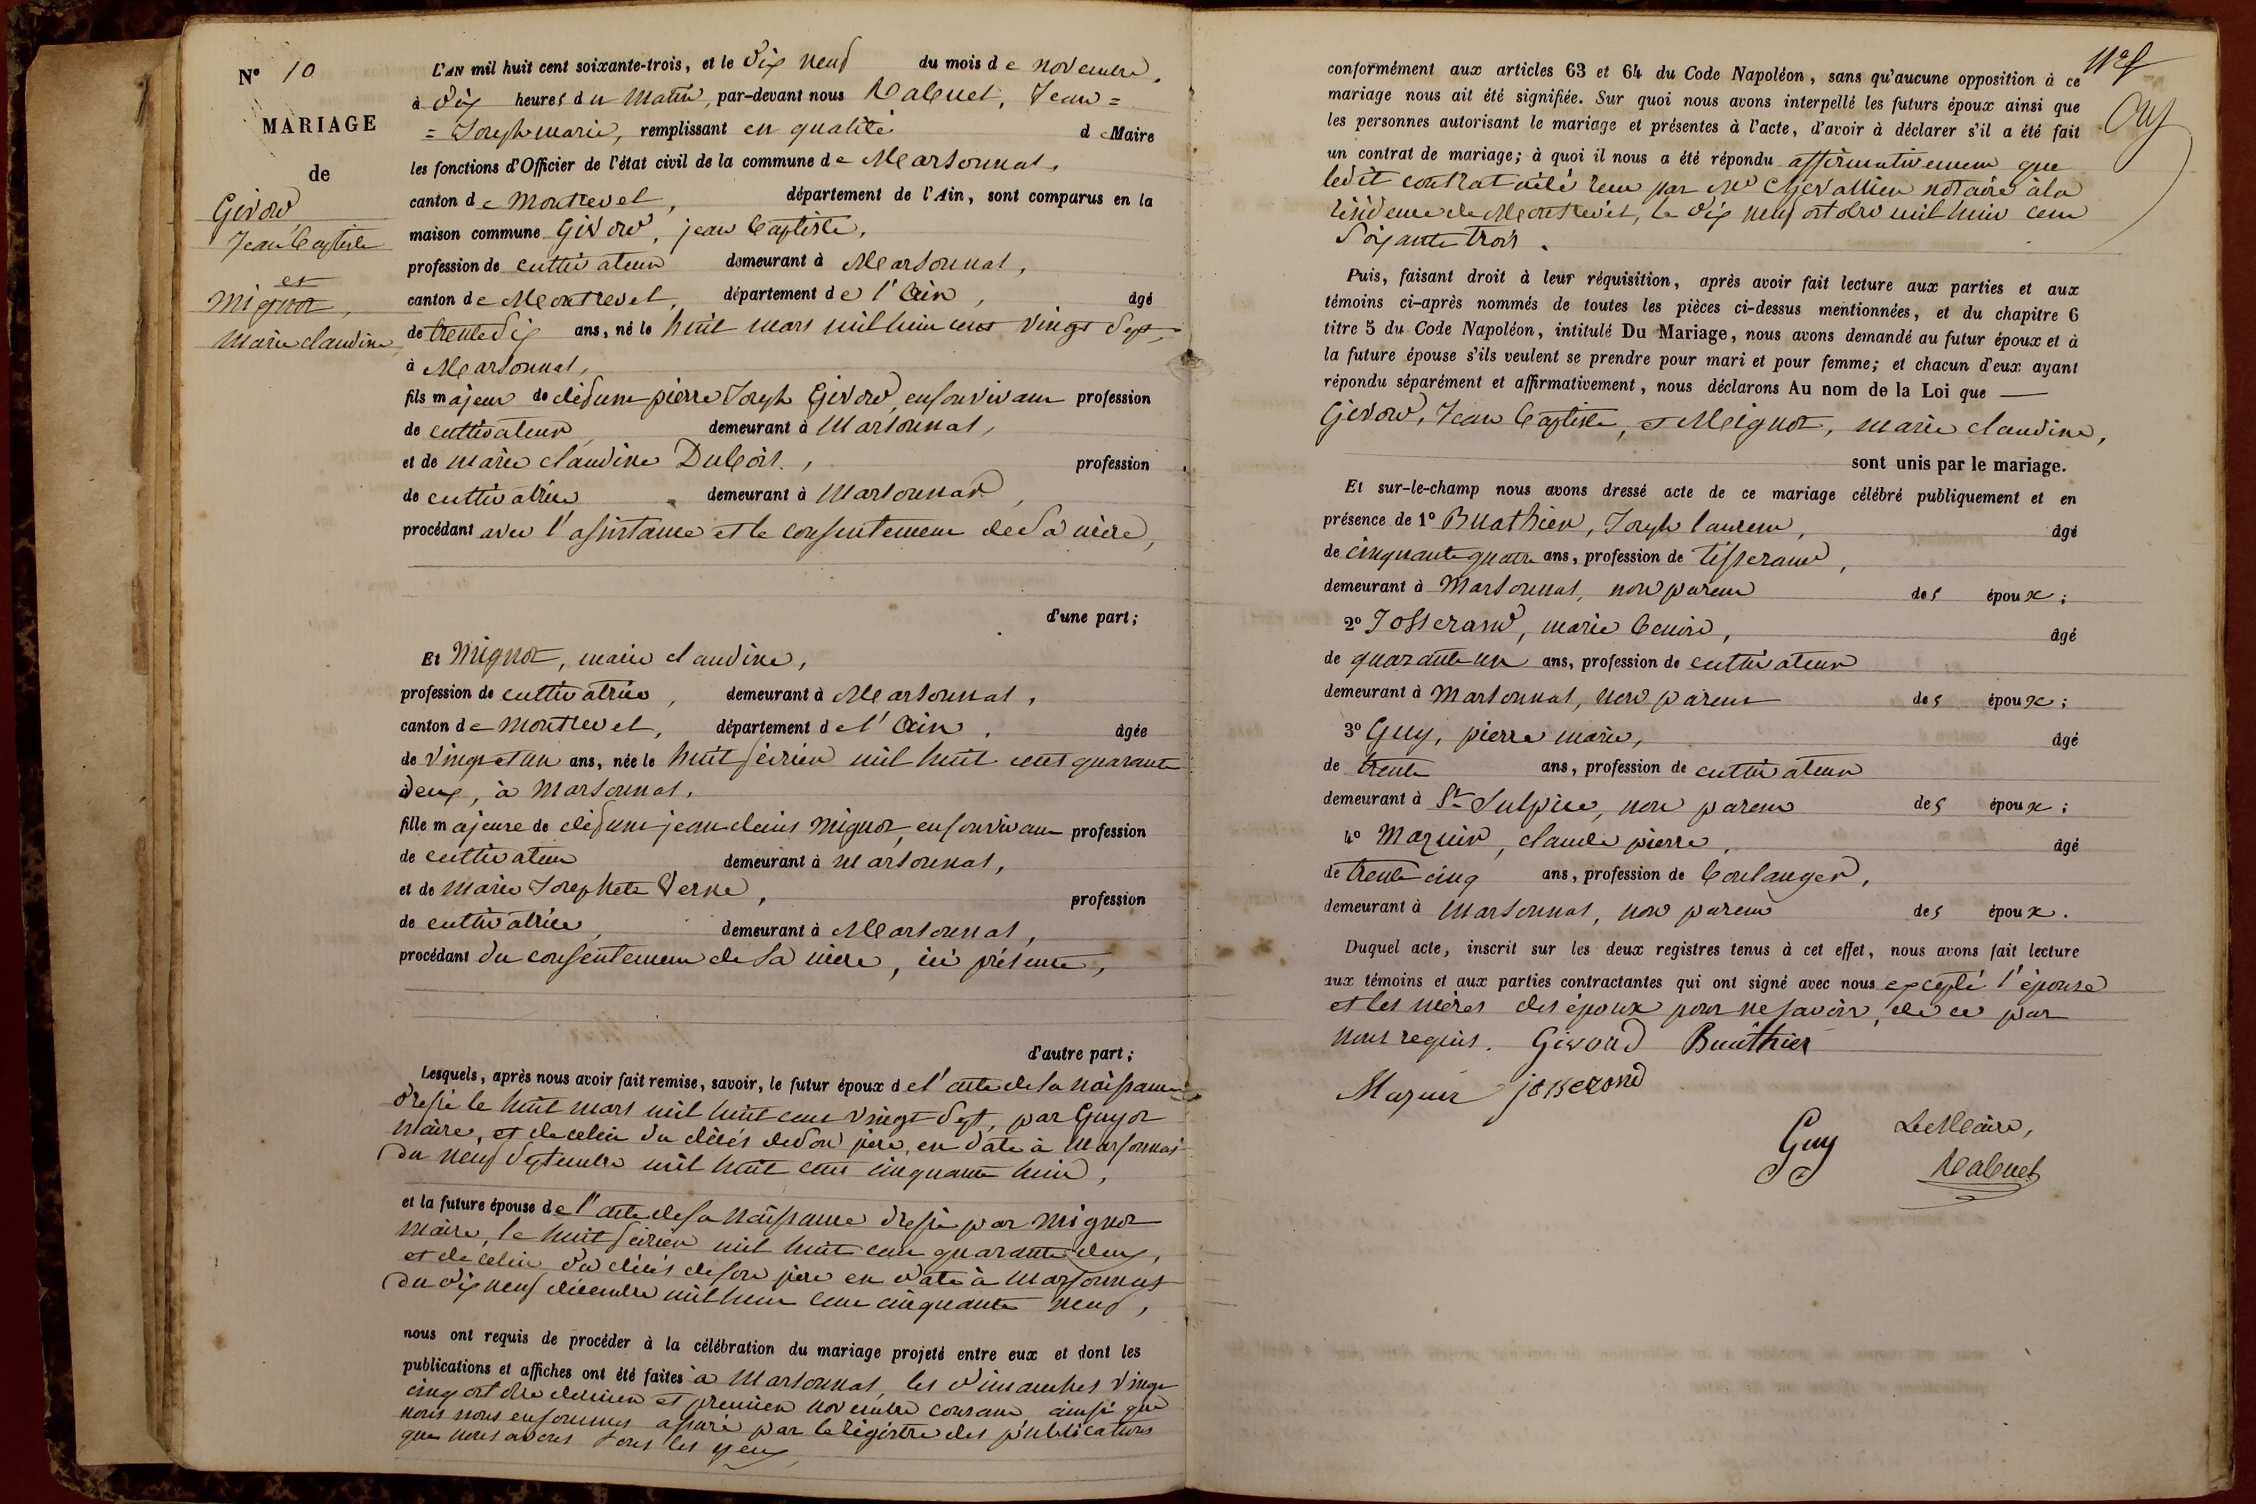 N° 10
MARIAGE
de
Givord
Jean Baptiste
et
Mignot,
Marie claudine
L'AN mil huit cent soixante-trois, et le dix neuf du mois de novembre,
à dix heures du matin, par-devant nous Rabuel, Jean =
= Joseph marie, remplissant en qualité de Maire
les fonctions d'Officier de l'état civil de la commune de Marsonnas,
canton de Montrevel, département de l'Ain, sont comparus en la
maison commune Givord, jean Baptiste,
profession de cultivateur demeurant à Marsonnas,
canton de Montrevel, département de l'Ain, âgé
de trente six ans, né le huit mars mil huit cent vingt sept,
à Marsonnas,
fils majeur de défunt pierre Joseph Givord, en son vivant profession
de cultivateur, demeurant à Marsonnas,
et de marie claudine Dubois, profession
de cultivatrice demeurant à Marsonnas,
procédant avec l'assistance et le consentement de sa mère,
d'une part;
Et Mignot, marie claudine,
profession de cultivatrice, demeurant à Marsonnas,
canton de Montrevel, département de l'Ain, âgée
de vingt et un ans, née le huit février mil huit cent quarante
deux, à Marsonnas,
fille majeure de défunt jean denis Mignot, en son vivant profession
de cultivateur demeurant à Marsonnas,
et de Marie Josephete Verne, profession
de cultivatrice, demeurant à Marsonnas,
procédant du consentement de sa mère, ici présente,
d'autre part;
Lesquels, après nous avoir fait remise, savoir, le futur époux de l'acte de sa naissance
dressé le huit mars mil huit cent vingt sept, par Guyot
maire, et de celui du décès de son père, en date à Marsonnas
du neuf septembre mil huit cent cinquante huit,
et la future épouse de l'acte de sa naissance dressé par Mignot
maire, le huit février mil huit cent quarante deux,
et de celui du décès de son père en date à Marsonnas
du dix neuf décembre mil huit cent cinquante neuf,
nous ont requis de procéder à la célébration du mariage projeté entre eux et dont les
publications et affiches ont été faites à Marsonnas, les dimanches vingt
cinq octobre dernier et premier novembre courant ainsi que
nous nous en sommes assuré par le régistre des publications
que nous avons sous les yeux,
conformément aux articles 63 et 64 du Code Napoléon, sans qu'aucune opposition à ce
mariage nous ait été signifiée. Sur quoi nous avons interpellé les futurs époux ainsi que
les personnes autorisant le mariage et présentes à l'acte, d'avoir à déclarer s'il a été fait
un contrat de mariage; à quoi il nous a été répondu affirmativement que
ledit contrat a été reçu par Me Chevallier notaire à la
résidence de Montrevel, le dix neuf octobre mil huit cent
soixante trois.
Puis, faisant droit à leur réquisition, après avoir fait lecture aux parties et aux
témoins ci-après nommés de toutes les pièces ci-dessus mentionnées, et du chapitre 6
titre 5 du Code Napoléon, intitulé Du Mariage, nous avons demandé au futur époux et à
la future épouse s'ils veulent se prendre pour mari et pour femme; et chacun d'eux ayant
répondu séparément et affirmativement, nous déclarons Au nom de la Loi que —
Givord, Jean Baptiste, et Mignot, marie claudine,
sont unis par le mariage.
Et sur-le-champ nous avons dressé acte de ce mariage célébré publiquement et en
présence de 1° Buathier, Joseph laurent, âgé
de cinquante quatre ans, profession de tisserand,
demeurant à Marsonnas, non parent des époux;
2° Josserand, marie benoit, âgé
de quarante un ans, profession de cultivateur
demeurant à Marsonnas, non parent des époux;
3° Guy, pierre marie, âgé
de trente ans, profession de cultivateur
demeurant à St Sulpice, non parent des époux;
4° Mazuir, claude pierre, âgé
de trente cinq ans, profession de boulanger,
demeurant à Marsonnas, non parent des époux.
Duquel acte, inscrit sur les deux registres tenus à cet effet, nous avons fait lecture
aux témoins et aux parties contractantes qui ont signé avec nous excepté l'épouse
et les mères des époux pour ne savoir, de ce par
nous requis. Givord Buathier
Mazuir josserand
Guy Le Maire,
Rabuel